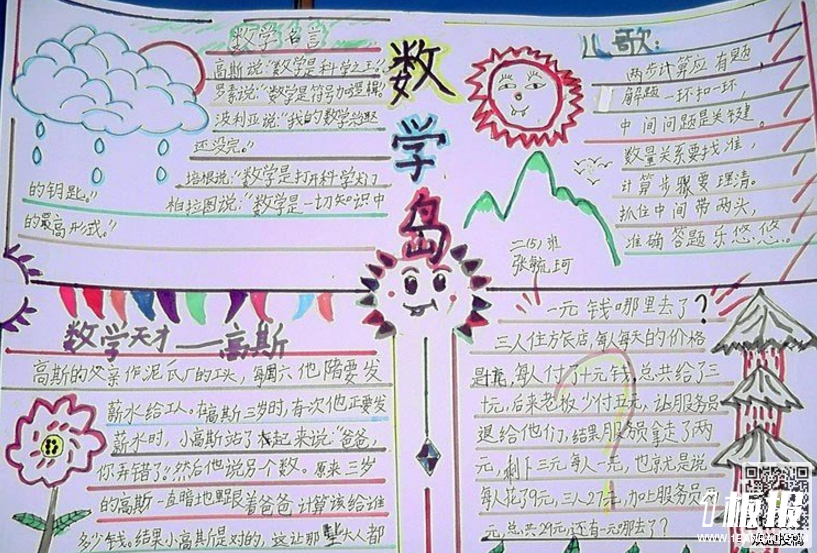 数学名言
高斯说:“数学是科学之王”
罗素说:“数学是符号加逻辑”
波利亚说:“我的数学
还没完。”
培根说:“数学是打开科学大门
的钥匙。”
柏拉图说:“数学是一切知识中
的最高形式。”
数学岛
儿歌:
两步计算应有题
解题一环扣一环,
中间问题是关键。
数量关系要找准,
计算步骤要理清。
抓住中间带两头,
准确答题乐悠悠。
二(5)班
张毓珂
数学天才——高斯
高斯的父亲作泥瓦厂的工头,每周六他陪要发
薪水给工人。在高斯三岁时,有次他正要发
薪水时,小高斯站了起来说:“爸爸,
你弄错了。”然后他说另个数。原来三岁
的高斯一直暗地里跟着爸爸计算该给谁
多少钱。结果小高斯是对的,这让那些大人都
一元钱哪里去了?
三人住方旅店,每人每天的价格
是十元,每人付了十元钱,总共给了三
十元,后来老板少付五元,让服务员
退给他们,结果服务员拿走了两
元,剩下三元每人一元,也就是说
每人花了9元,三人27元,加上服务员
元,总共29元,还有一元哪去了?
1板报